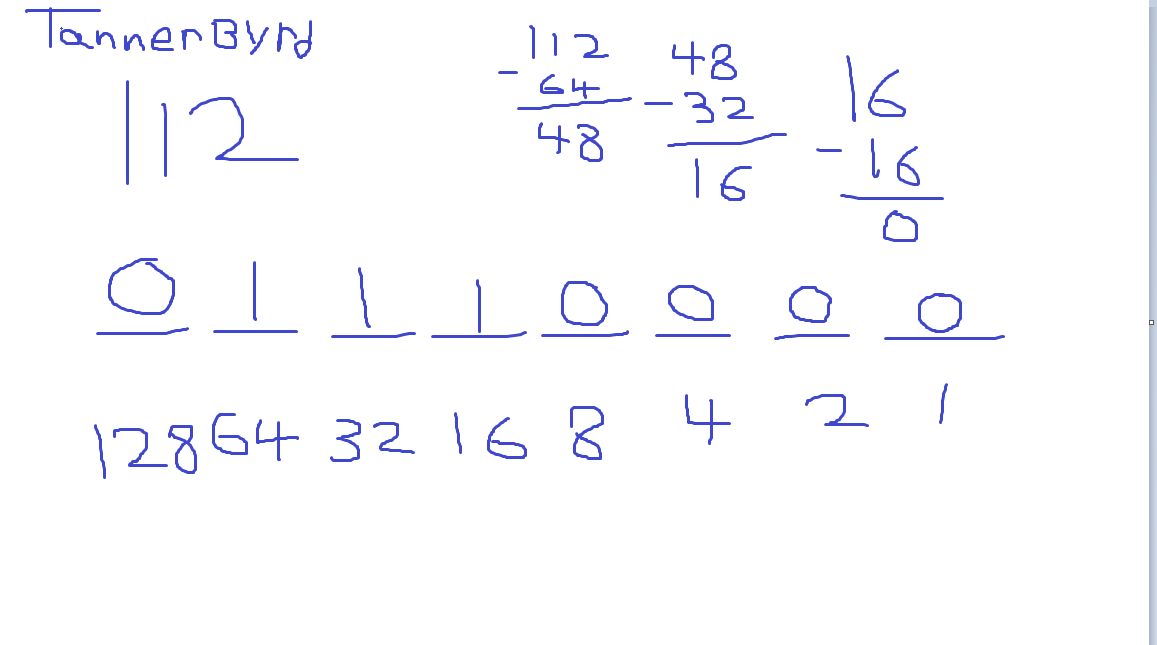 TannerByrd
112
112 - 64 48
48 - 32 16
16 - 16 0
0 1 1 1 0 0 0 0
128 64 32 16 8 4 2 1